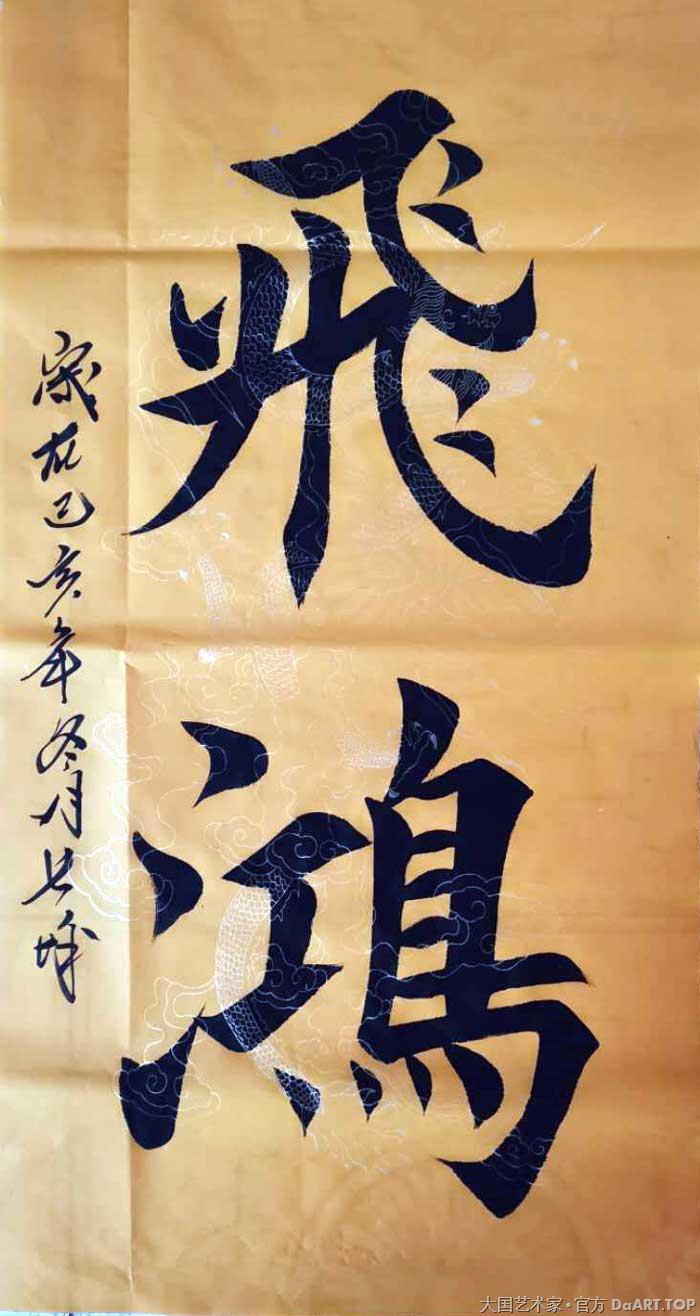 飛鴻
歲在己亥年冬月
大国艺术家·官方 DaART.TOP